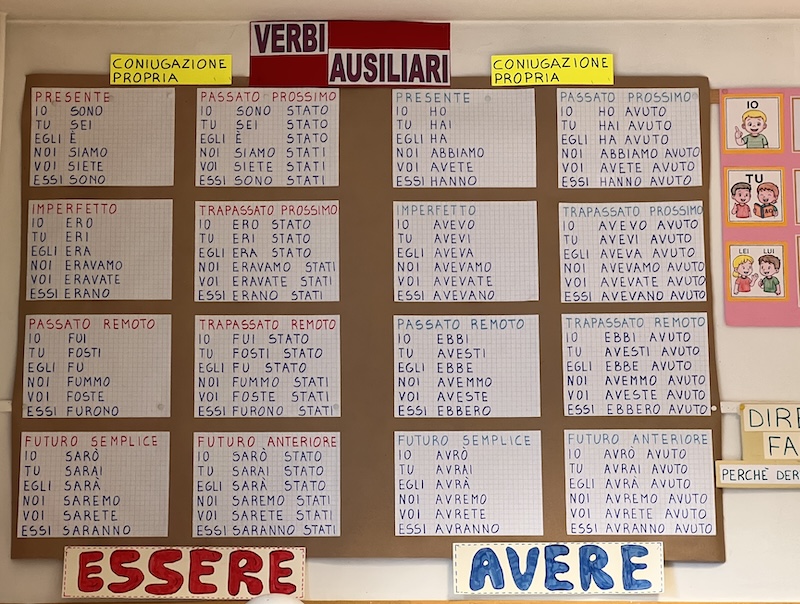 VERBI
AUSILIARI
CONIUGAZIONE
PROPRIA
CONIUGAZIONE
PROPRIA
PRESENTE
IO SONO
TU SEI
EGLI È
NOI SIAMO
VOI SIETE
ESSI SONO
PASSATO PROSSIMO
IO SONO STATO
TU SEI STATO
EGLI È STATO
NOI SIAMO STATI
VOI SIETE STATI
ESSI SONO STATI
PRESENTE
IO HO
TU HAI
EGLI HA
NOI ABBIAMO
VOI AVETE
ESSI HANNO
PASSATO PROSSIMO
IO HO AVUTO
TU HAI AVUTO
EGLI HA AVUTO
NOI ABBIAMO AVUTO
VOI AVETE AVUTO
ESSI HANNO AVUTO
IMPERFETTO
IO ERO
TU ERI
EGLI ERA
NOI ERAVAMO
VOI ERAVATE
ESSI ERANO
TRAPASSATO PROSSIMO
IO ERO STATO
TU ERI STATO
EGLI ERA STATO
NOI ERAVAMO STATI
VOI ERAVATE STATI
ESSI ERANO STATI
IMPERFETTO
IO AVEVO
TU AVEVI
EGLI AVEVA
NOI AVEVAMO
VOI AVEVATE
ESSI AVEVANO
TRAPASSATO PROSSIMO
IO AVEVO AVUTO
TU AVEVI AVUTO
EGLI AVEVA AVUTO
NOI AVEVAMO AVUTO
VOI AVEVATE AVUTO
ESSI AVEVANO AVUTO
PASSATO REMOTO
IO FUI
TU FOSTI
EGLI FU
NOI FUMMO
VOI FOSTE
ESSI FURONO
TRAPASSATO REMOTO
IO FUI STATO
TU FOSTI STATO
EGLI FU STATO
NOI FUMMO STATI
VOI FOSTE STATI
ESSI FURONO STATI
PASSATO REMOTO
IO EBBI
TU AVESTI
EGLI EBBE
NOI AVEMMO
VOI AVESTE
ESSI EBBERO
TRAPASSATO REMOTO
IO EBBI AVUTO
TU AVESTI AVUTO
EGLI EBBE AVUTO
NOI AVEMMO AVUTO
VOI AVESTE AVUTO
ESSI EBBERO AVUTO
FUTURO SEMPLICE
IO SARÒ
TU SARAI
EGLI SARÀ
NOI SAREMO
VOI SARETE
ESSI SARANNO
FUTURO ANTERIORE
IO SARÒ STATO
TU SARAI STATO
EGLI SARÀ STATO
NOI SAREMO STATI
VOI SARETE STATI
ESSI SARANNO STATI
FUTURO SEMPLICE
IO AVRÒ
TU AVRAI
EGLI AVRÀ
NOI AVREMO
VOI AVRETE
ESSI AVRANNO
FUTURO ANTERIORE
IO AVRÒ AVUTO
TU AVRAI AVUTO
EGLI AVRÀ AVUTO
NOI AVREMO AVUTO
VOI AVRETE AVUTO
ESSI AVRANNO AVUTO
ESSERE
AVERE
IO
TU
LEI LUI
DIRE
FA
PERCHÈ DER